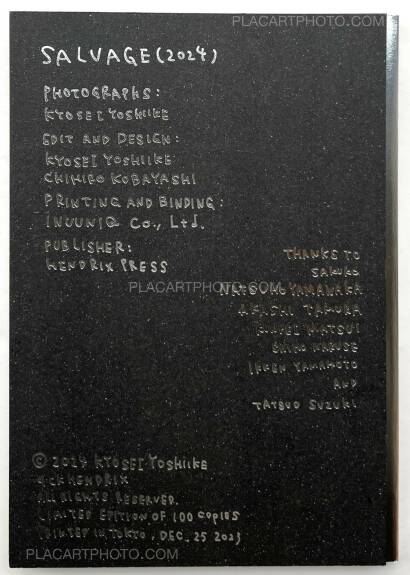 PLACARTPHOTO.COM
SALVAGE (2024)
PHOTOGRAPHS:
KYOSEI YOSHIIKE
EDIT AND DESIGN:
KYOSEI YOSHIIKE
CHIHIRO KOBAYASHI
PRINTING AND BINDING:
INUUNIQ Co., Ltd.
PUBLISHER:
HENDRIX PRESS
THANKS TO
SAKUKO
PLACARTPHOTO.COM
YAMANAKA
AKASHI TAMURA
MATSUI
IKKEN YAMAMOTO
AND
TATSUO SUZUKI
© 2024 KYOSEI YOSHIIKE
HENDRIX
ALL RIGHTS RESERVED.
LIMITED EDITION OF 100 COPIES
PRINTED IN TOKYO, DEC. 25 2023
PLACARTPHOTO.COM